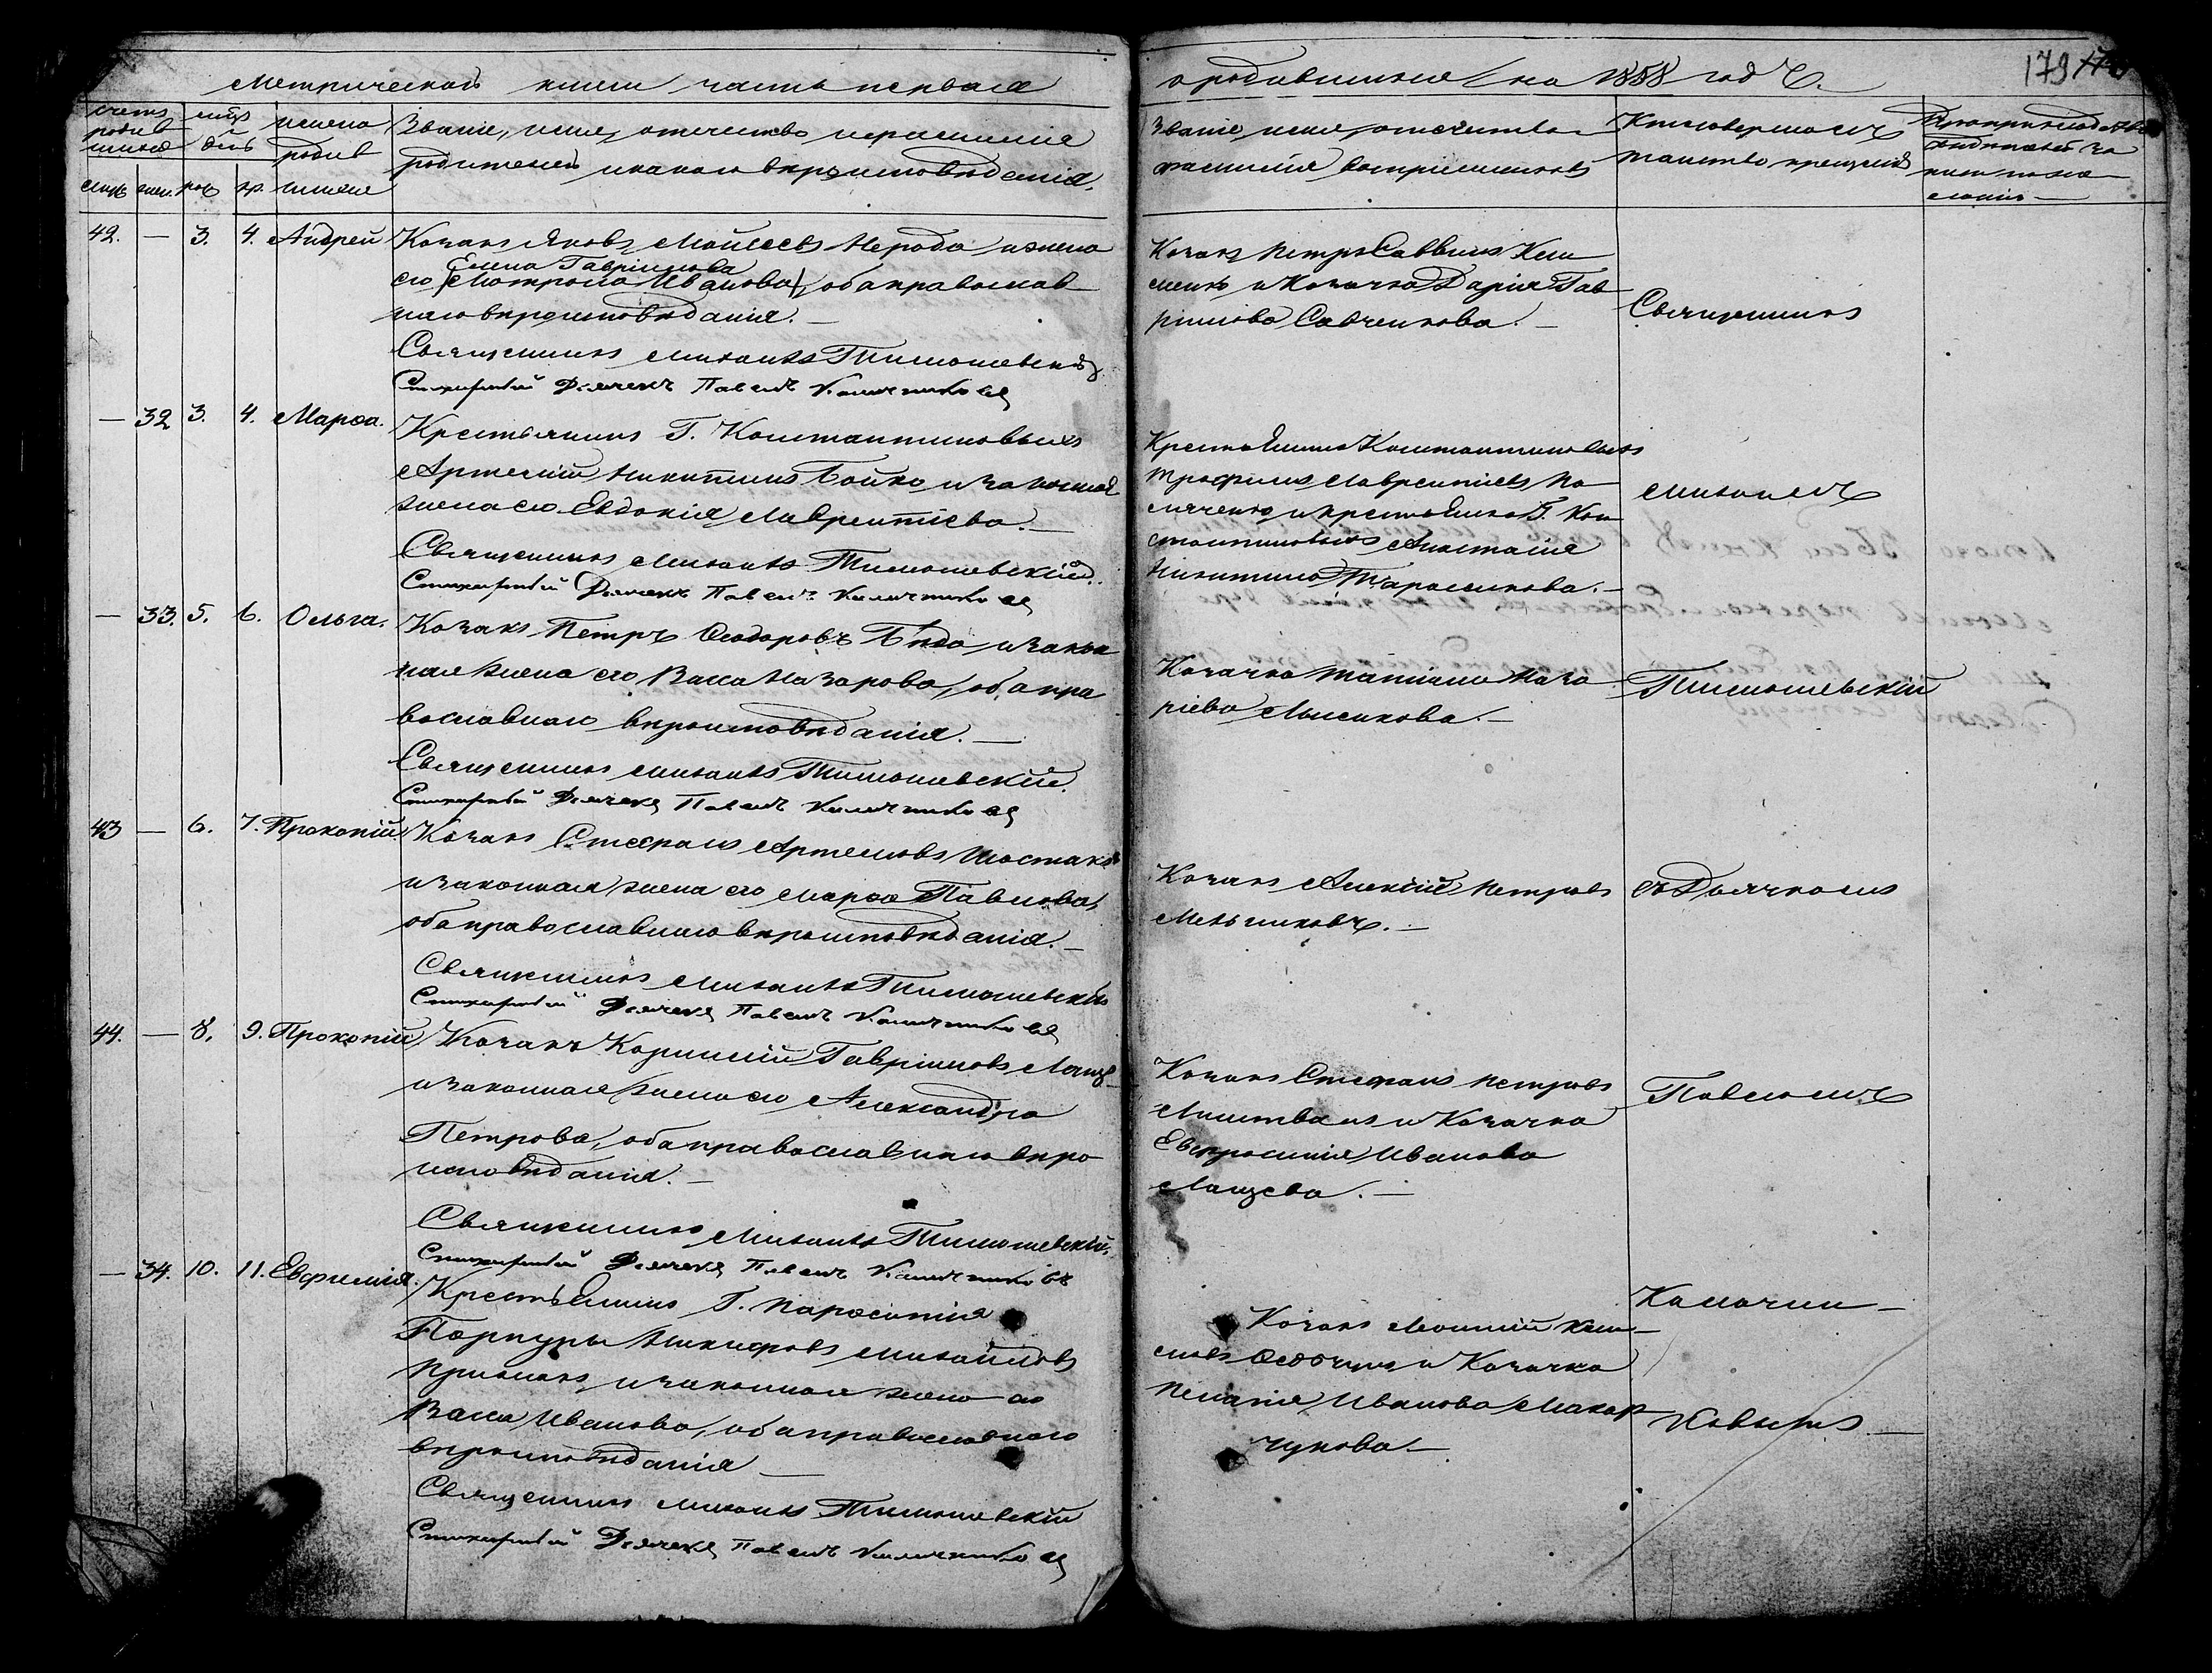 Метрической книги часть первая
о родившихся на 1858 годъ.
179
счетъ родив
шихся
мцъ
и
день
имена
родив
шихся
Званіе, имя, отечество и фамилія
родителей и какого вѣроисповѣданія.
муж. жен. рож. кр.
Званіе, имя, отечество и
фамилія воспріемниковъ
Кто совершалъ
таинство крещенія
42. — 3. 4. Андрей
Козакъ Яковъ Моисеевъ Нерода и жена
Елена Гавріилова
его (Мотрона Иванова), оба православ
наго вѣроисповѣданія. —
Священникъ Михаилъ Тимошевскій
Стихарный Дьячекъ Павелъ
Козакъ Петръ Саввинъ Кли
менко и Козачка Дарія Гав
ріилова Савченкова. —
Священникъ
— 32 3. 4. Марѳа.
Крестьянинъ Г. Константиновыхъ
Артемій Никитинъ Бойко и законная
жена его Евдокія Лаврентіева. —
Священникъ Михаилъ Тимошевскій.
Стихарный Дьячекъ Павелъ
Крестьянинъ Константиновыхъ
Трофимъ Лаврентіевъ
и крестьянка Г. Кон
стантиновыхъ Анастасія
Никитина Тарасенкова. —
Михаилъ
— 33. 5. 6. Ольга.
Козакъ Петръ Ѳеодоровъ Бѣда и закон
ная жена его Васса Назарова, оба пра
вославнаго вѣроисповѣданія. —
Священникъ Михаилъ Тимошевскій.
Стихарный Дьячекъ Павелъ
Козачка Татіана Наза
ріева Лысенкова. —
Тимошевскій
43 — 6. 7. Прокопій
Козакъ Стефанъ Артемовъ Шостакъ
и законная жена его Марѳа Павлова,
оба православнаго вѣроисповѣданія. —
Священникъ Михаилъ Тимошевскій
Стихарный Дьячекъ Павелъ
Козакъ Алексій Петровъ
Мельниковъ. —
съ Дьячкомъ
44. — 8. 9. Прокопій
Козакъ Корнилій Гавріиловъ
и законная жена его Александра
Петрова, оба православнаго вѣро
исповѣданія. —
Священникъ Михаилъ Тимошевскій.
Стихарный Дьячекъ Павелъ
Козакъ Стефанъ Петровъ
и Козачка
Евфросинія Иванова
—
Павломъ
— 34. 10. 11. Евфимія.
Крестьянинъ Г. Параскевіи
Никифоръ Михайловъ
и законная жена его
Васса Иванова, оба православнаго
вѣроисповѣданія —
Священникъ Михаилъ Тимошевскій
Стихарный Дьячекъ Павелъ
Козакъ
и Козачка
Пелагія Иванова Макар
чукова. —